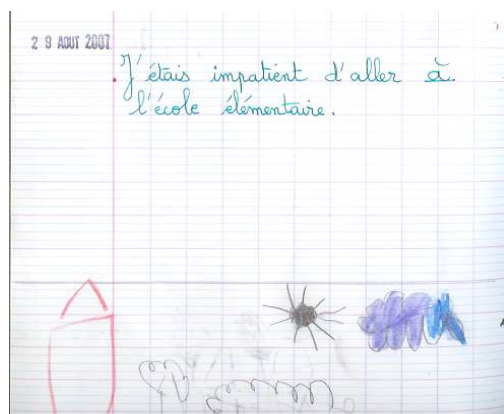 29 AOUT 2007
J'étais impatient d'aller à
l'école élémentaire.